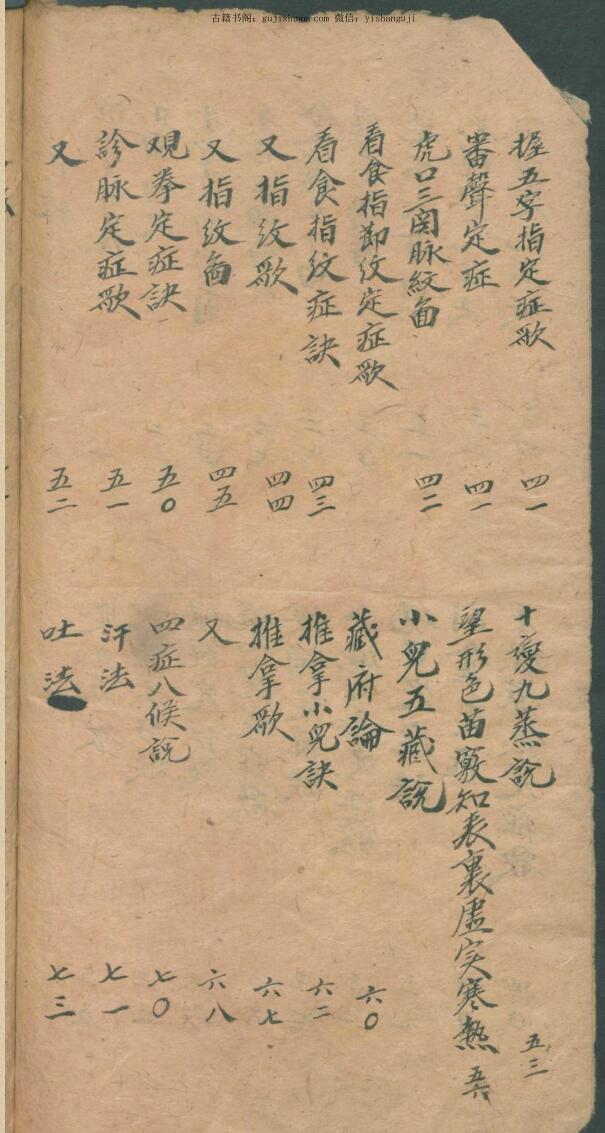 古籍书阁：gujishuge.com 微信：yishanguji
握五字指定症歌 四一
審聲定症 四一
虎口三関脉紋啚 四二
看食指節紋定症歌
看食指纹症訣 四三
又指纹歌 四四
又指纹啚 四五
覌拳定症訣 五〇
診脉定症歌 五一
又 五二
十變九蒸說 五三
望形色苗竅知表裏虛实寒熱 五六
小児五藏說
藏府論 六〇
推拿小児訣 六二
推拿歌 六七
又 六八
四症八候說 七〇
汗法 七一
吐法 七三